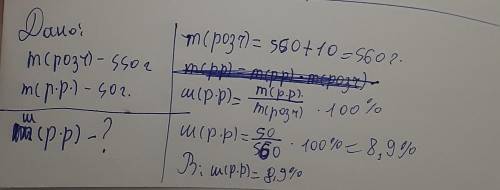 Дано:
m(розч) - 550 г
m(р.р.) - 50г.
ш(р.р) - ?
m(розч) = 550 + 10 = 560 г.
m(рр) = m(рр) - m(розч)
ш(р.р) = m(р.р.) / m(розч) · 100%
ш(р.р) = 50 / 560 · 100% = 8,9%
В: ш(р.р) = 8,9%